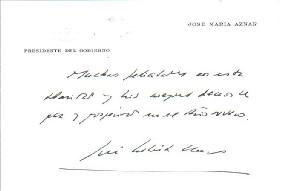 JOSE MARIA AZNAR
PRESIDENTE DEL GOBIERNO
Muchas felicidades en esta
Navidad y mis mejores deseos de
paz y prosperidad en el Año nuevo
José María Aznar